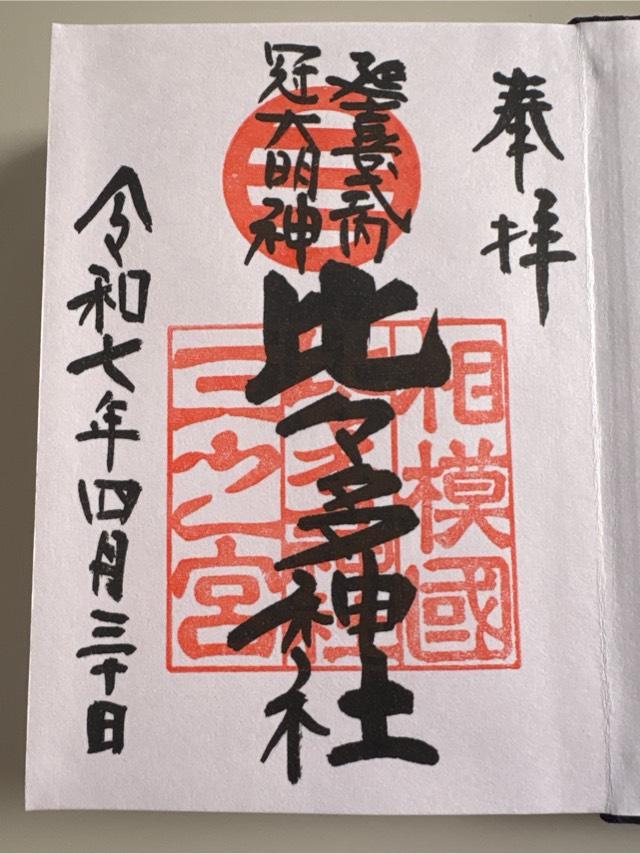 奉拝
延喜式内
冠大明神
比々多神社
相模國
三之宮
令和七年四月三十日